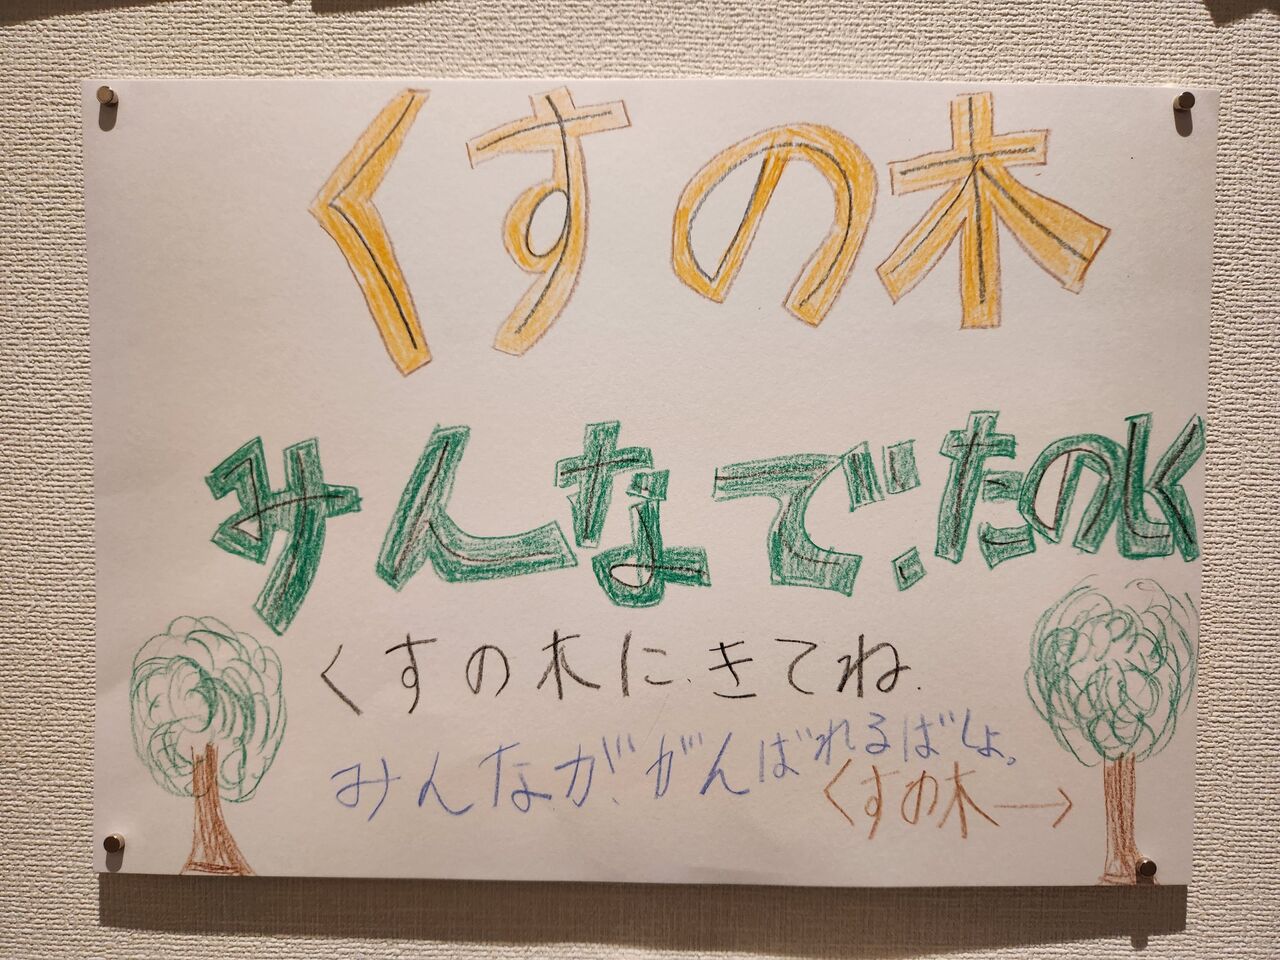 くすの木
みんなで、たのしく
くすの木に、きてね.
みんなが、がんばれるばしょ。
くすの木→